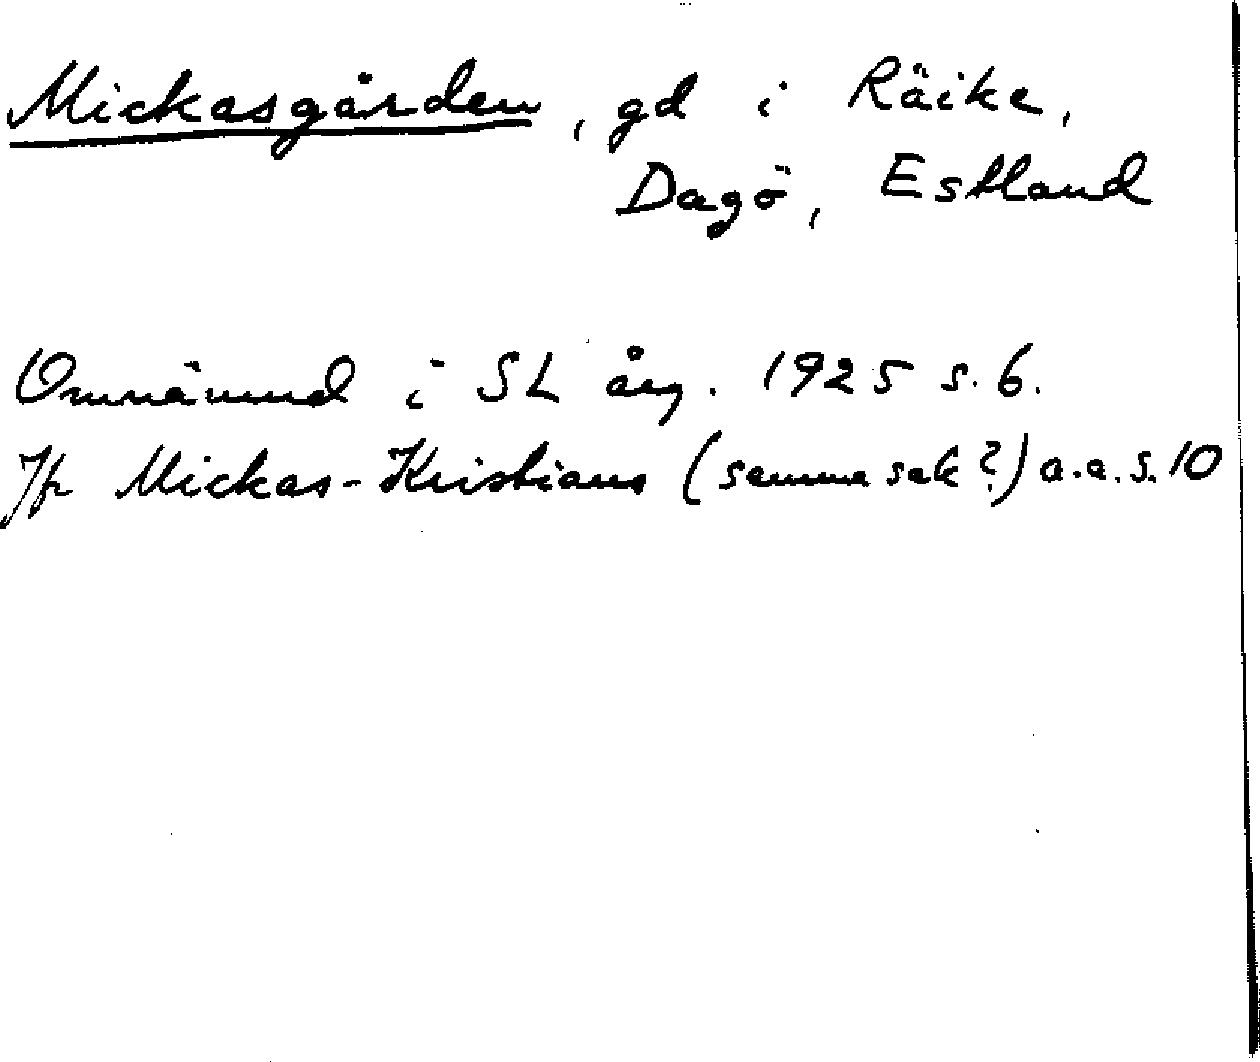 Mickasgården, gd i Räike,
Dagö, Estland
Omnämnd i SL årg. 1925 s. 6.
Jfr Mickas-Kristians (samma sak?) a.a. s. 10